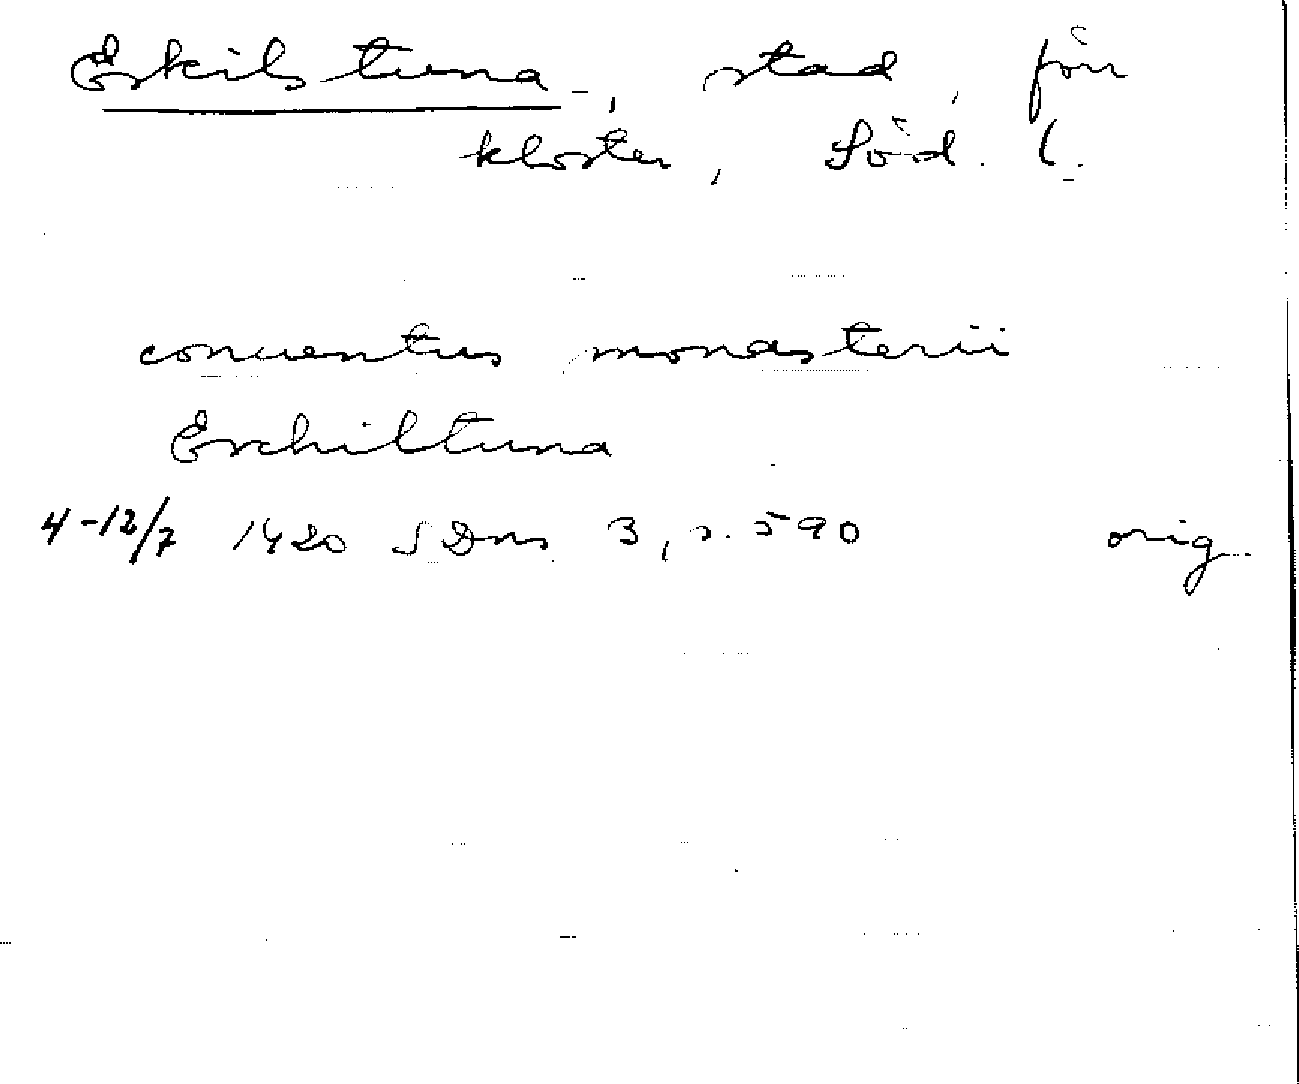 Eskilstuna, stad, förr
kloster, Söd. l.
conuentus monasterii
Eschiltuna
4-12/7 1420 SDns 3, s. 590 orig.